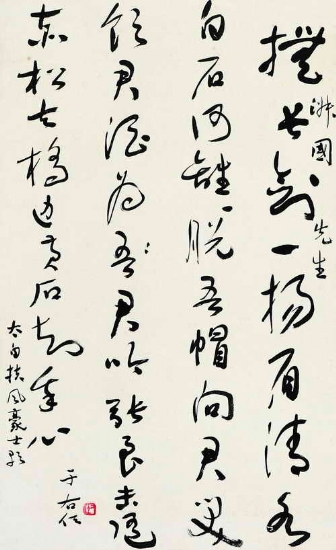 撫長劍一揚眉清水
國先生
白石何離離脫吾帽向君笑
飲君酒為吾君吟張良未逐
赤松去橋邊黃石知我心
太白扶風豪士歌
于右任